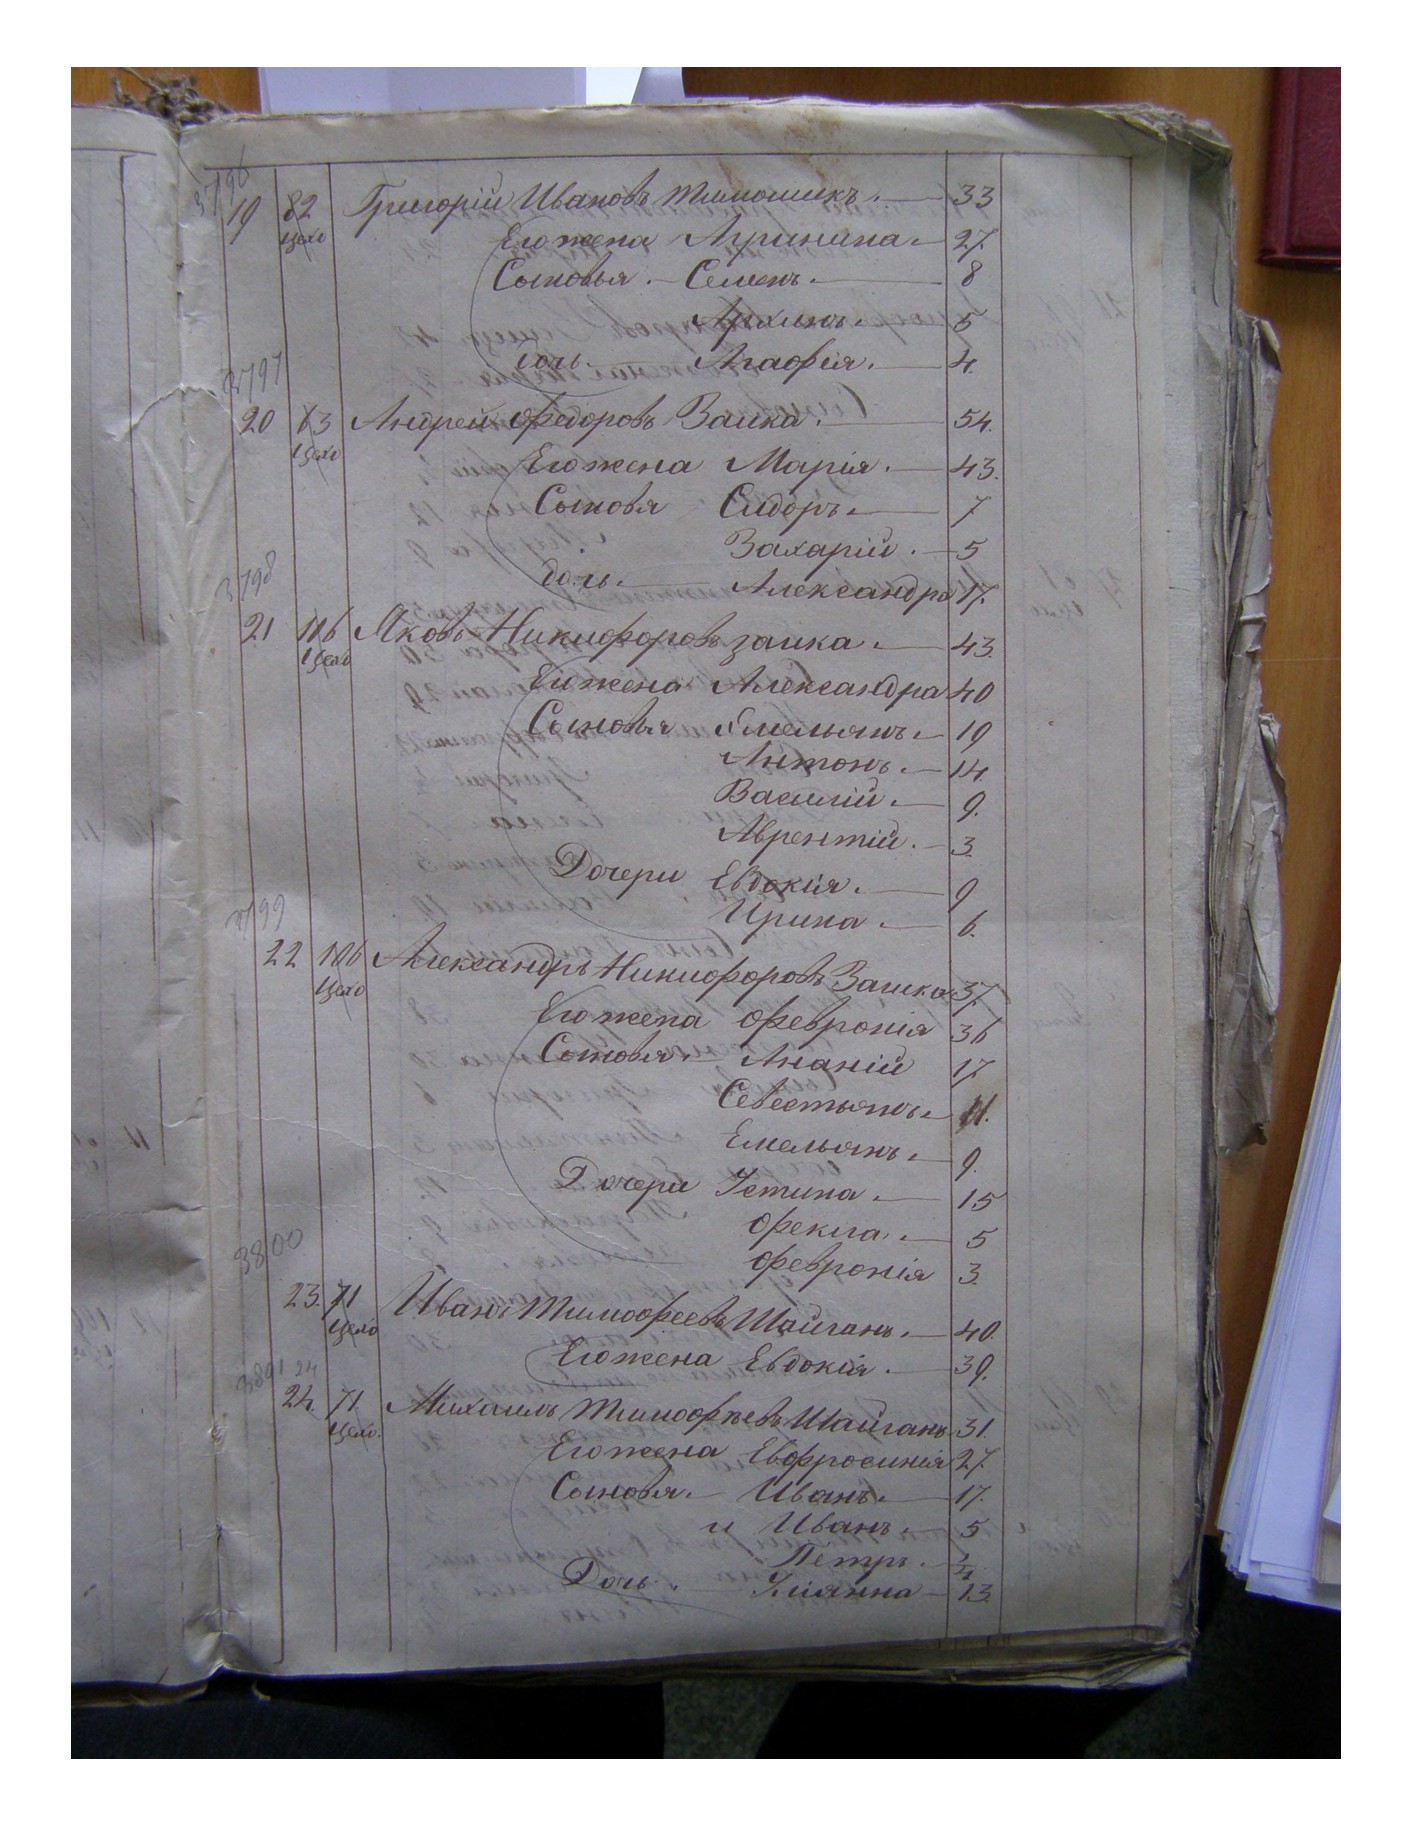 3796
19 82 Григорій Ивановъ Тимошикъ. — 33
цехо
Его жена Агрипина — 27.
Сыновья. — Семенъ. — 8
Архипъ. 5
дочь. Агафія. — 4.
3797
20 83 Андрей Федоровъ Заика. — 54.
цехо
Его жена Марія. — 43.
Сыновя Сидоръ. — 7
Захарій. — 5
дочь. — Александра 17.
3798
21 116 Яковъ Никифоровъ заика. — 43.
цехо
Его жена Александра 40
Сыновья Емельянъ. — 19
Антонъ. — 14.
Василій. — 9.
Аврентій. — 3.
Дочери Евдокія. — 9
Ирина — 6.
3799
22 106 Александръ Никифоровъ Заика 37.
цехо
Его жена Февронія 36
Сыновья. — Ананій 17.
Севестьянъ. — 11.
Емельянъ. — 9.
Дочери Устина. — 15
Фекла. — 5
Февронія 3.
3800
23. 71 Иванъ Тимофеевъ Шайганъ. — 40.
цехо
Его жена Евдокія. — 39.
3801 24
24. 71 Михаилъ Тимофѣевъ Шайганъ 31.
цехо.
Его жена Евфросинія 27.
Сыновья. — Иванъ. — 17.
и Иванъ. — 5
Петръ. —
Дочь. — Уліянна — 13.